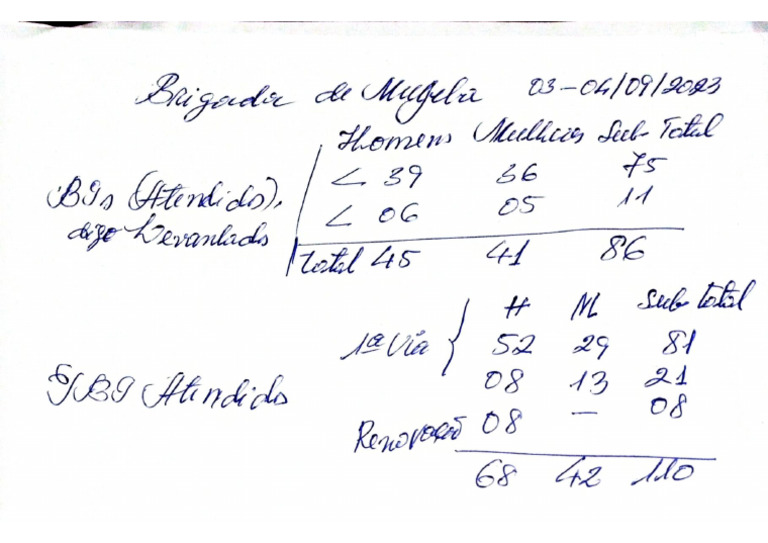 Brigada de Mugeba 03-04/09/2023
Homens Mulheres Sub-Total
BIs (Atendido), < 39 36 75
digo Levantados < 06 05 11
Total 45 41 86
H M Sub total
1ª Via { 52 29 81
BI Atendido 08 13 21
Renovação 08 — 08
68 42 110